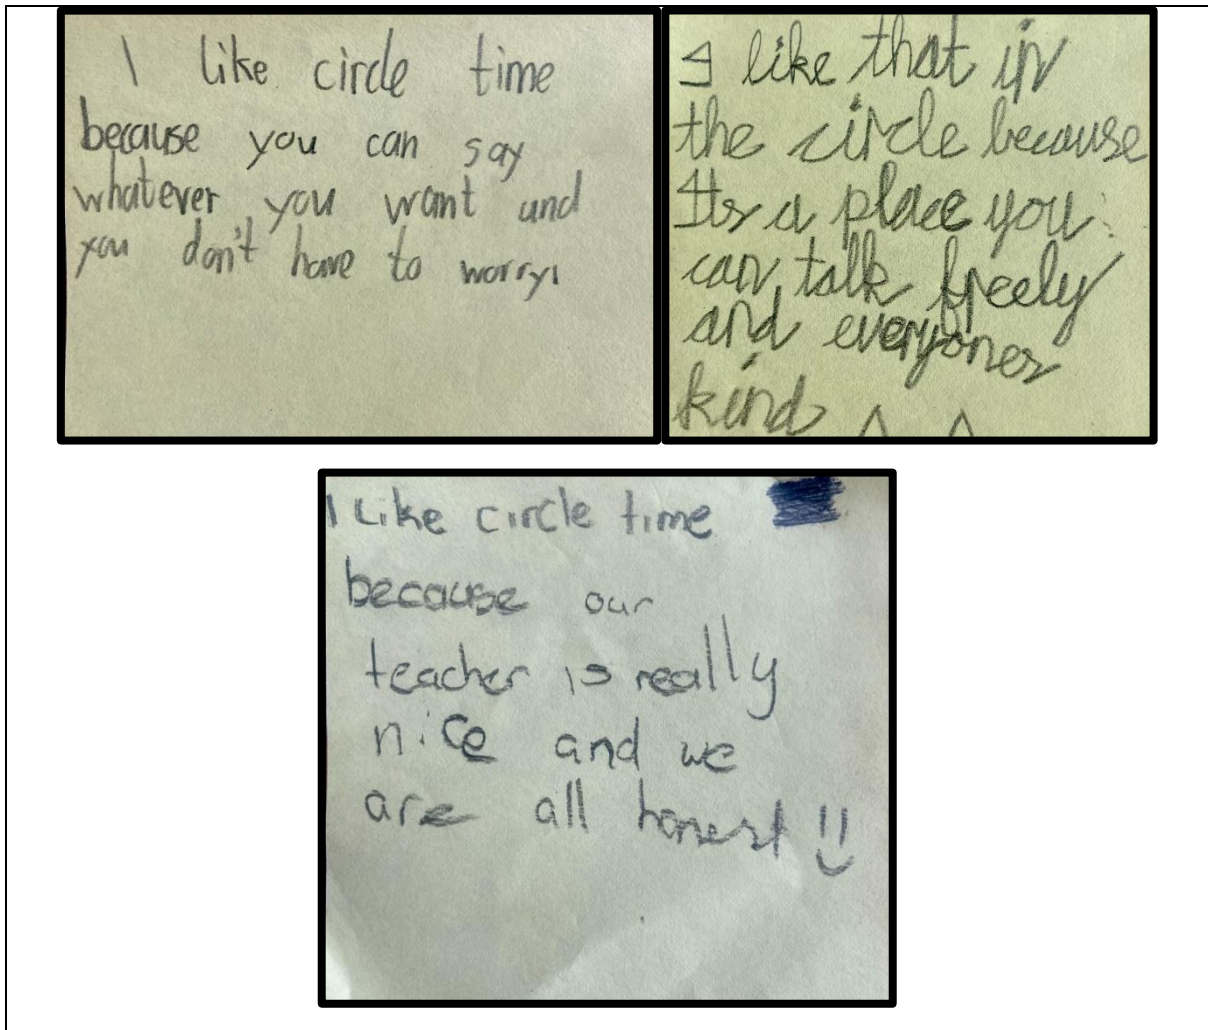 I like circle time
because you can say
whatever you want and
you don't have to worry!
I like that in
the circle because
Its a place you
can talk freely
and everyones
kind
I Like circle time
because our
teacher is really
nice and we
are all honest!!